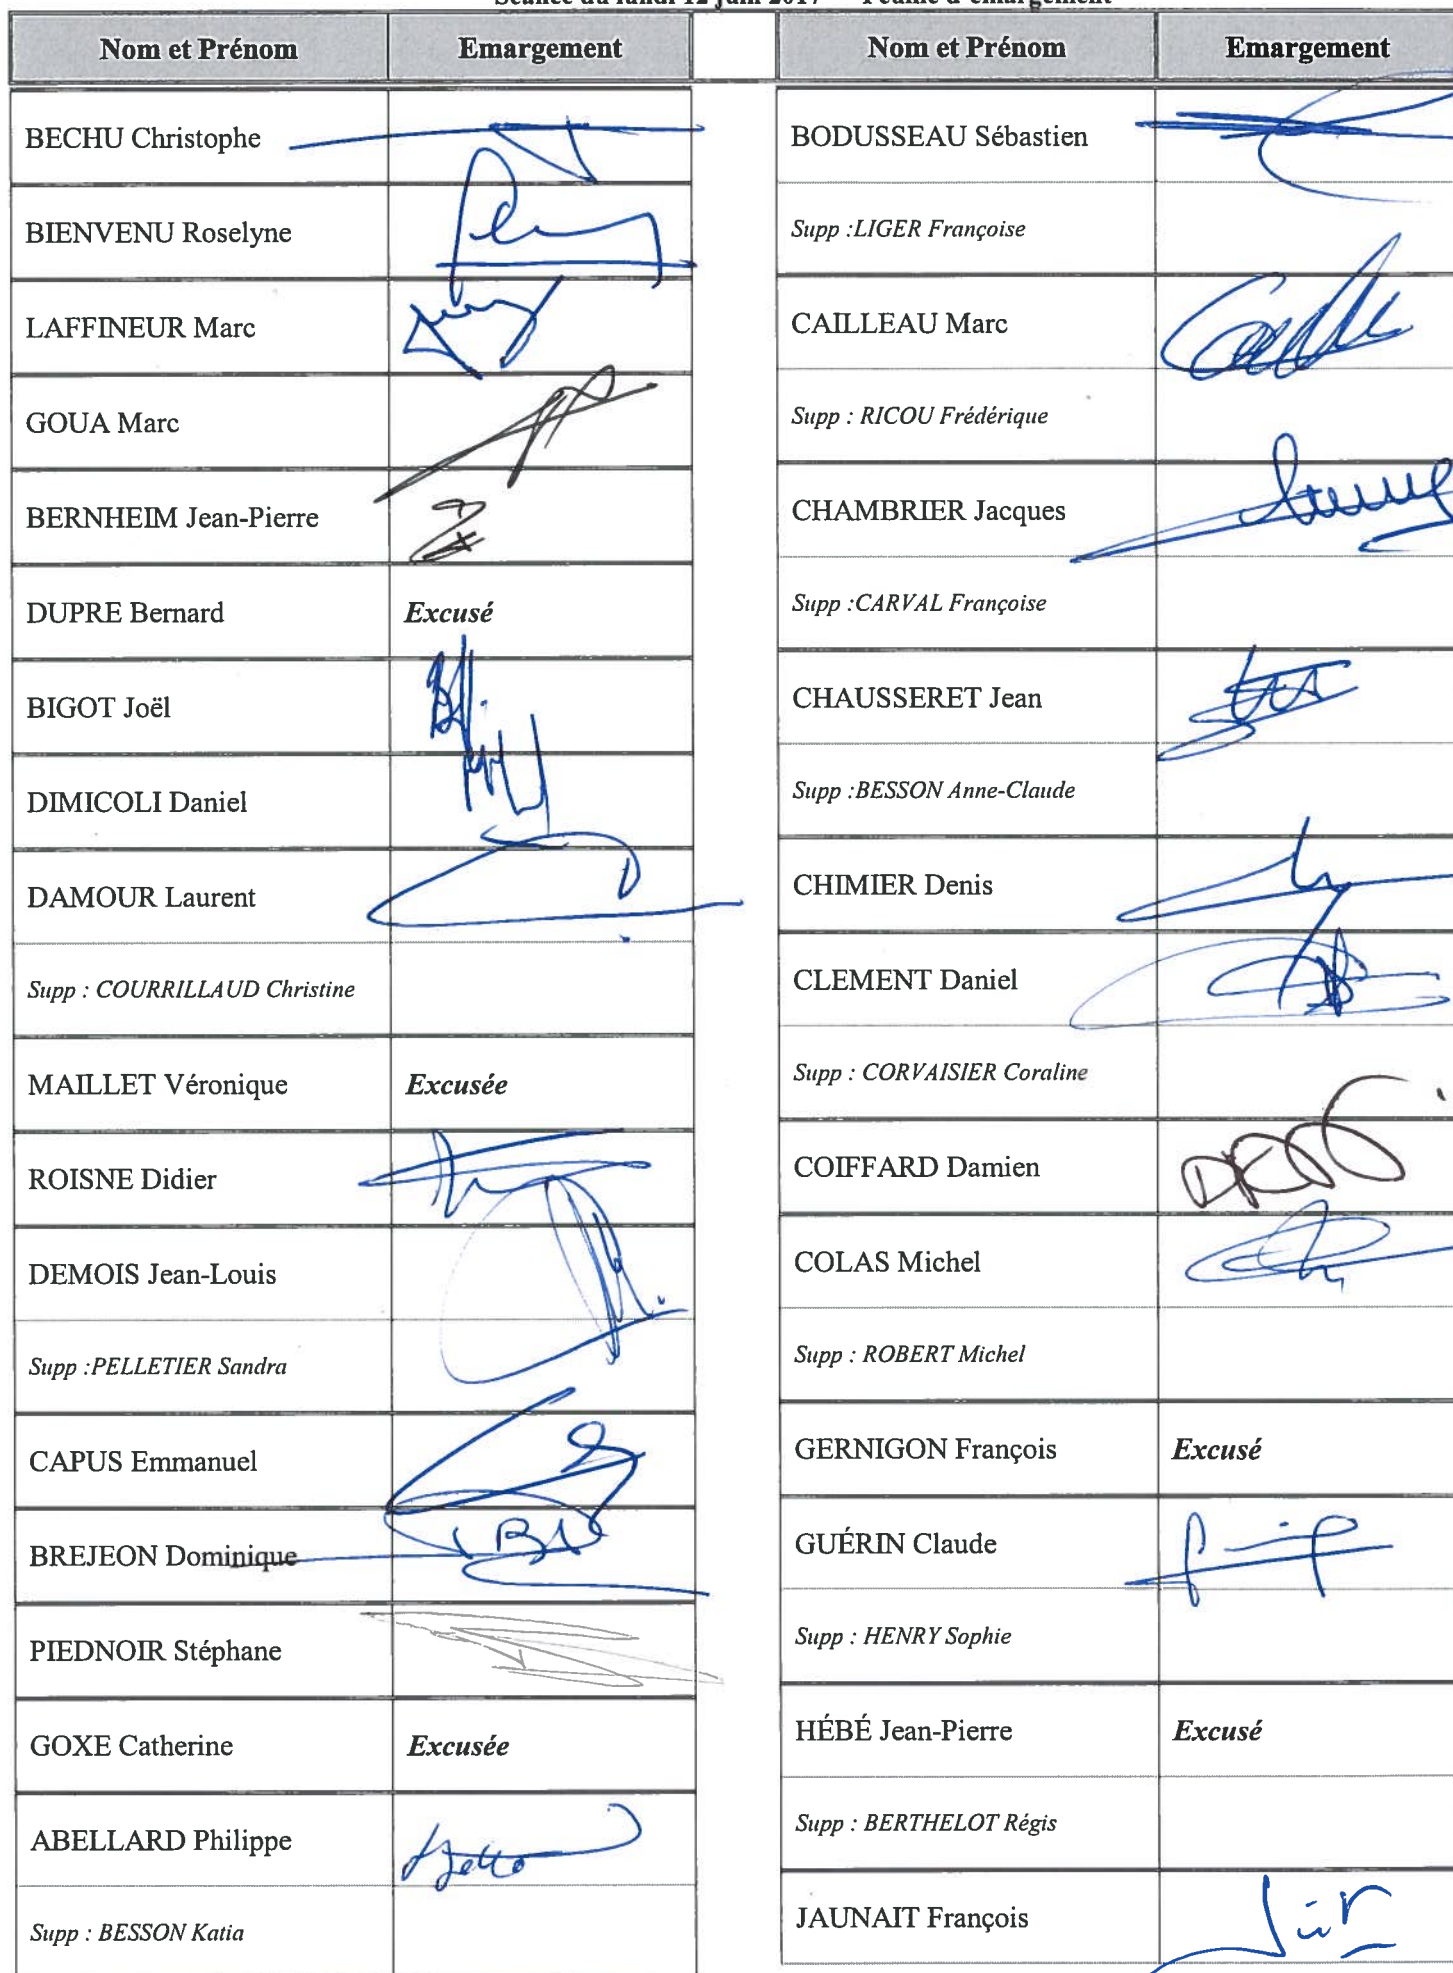 Séance du lundi 12 juin 2017 Feuille d'émargement
Nom et Prénom Emargement
BECHU Christophe
BIENVENU Roselyne
LAFFINEUR Marc
GOUA Marc
BERNHEIM Jean-Pierre
DUPRE Bernard Excusé
BIGOT Joël
DIMICOLI Daniel
DAMOUR Laurent
Supp : COURRILLAUD Christine
MAILLET Véronique Excusée
ROISNE Didier
DEMOIS Jean-Louis
Supp :PELLETIER Sandra
CAPUS Emmanuel
BREJEON Dominique
PIEDNOIR Stéphane
GOXE Catherine Excusée
ABELLARD Philippe
Supp : BESSON Katia
Nom et Prénom Emargement
BODUSSEAU Sébastien
Supp :LIGER Françoise
CAILLEAU Marc
Supp : RICOU Frédérique
CHAMBRIER Jacques
Supp :CARVAL Françoise
CHAUSSERET Jean
Supp :BESSON Anne-Claude
CHIMIER Denis
CLEMENT Daniel
Supp : CORVAISIER Coraline
COIFFARD Damien
COLAS Michel
Supp : ROBERT Michel
GERNIGON François Excusé
GUÉRIN Claude
Supp : HENRY Sophie
HÉBÉ Jean-Pierre Excusé
Supp : BERTHELOT Régis
JAUNAIT François